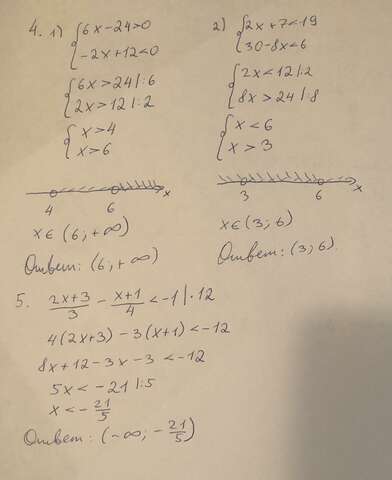 4. 1) { 6x-24>0
-2x+12<0
{ 6x>24 |:6
2x>12 |:2
{ x>4
x>6
4 6 x
x∈(6;+∞)
Ответ: (6;+∞)
2) { 2x+7<19
30-8x<6
{ 2x<12 |:2
8x>24 |:8
{ x<6
x>3
3 6 x
x∈(3;6)
Ответ: (3;6).
5. (2x+3)/3 - (x+1)/4 < -1 | ·12
4(2x+3)-3(x+1)<-12
8x+12-3x-3<-12
5x<-21 |:5
x<-21/5
Ответ: (-∞; -21/5)